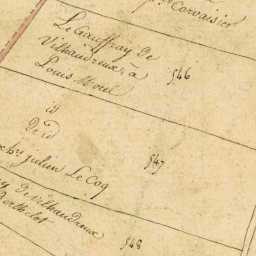 Corvaisier
Le Gauffray de
Vilhaudreux à
Louis
546
id
De id
julien Le Coq
547
de Vilhaudreux
Berthelot
548